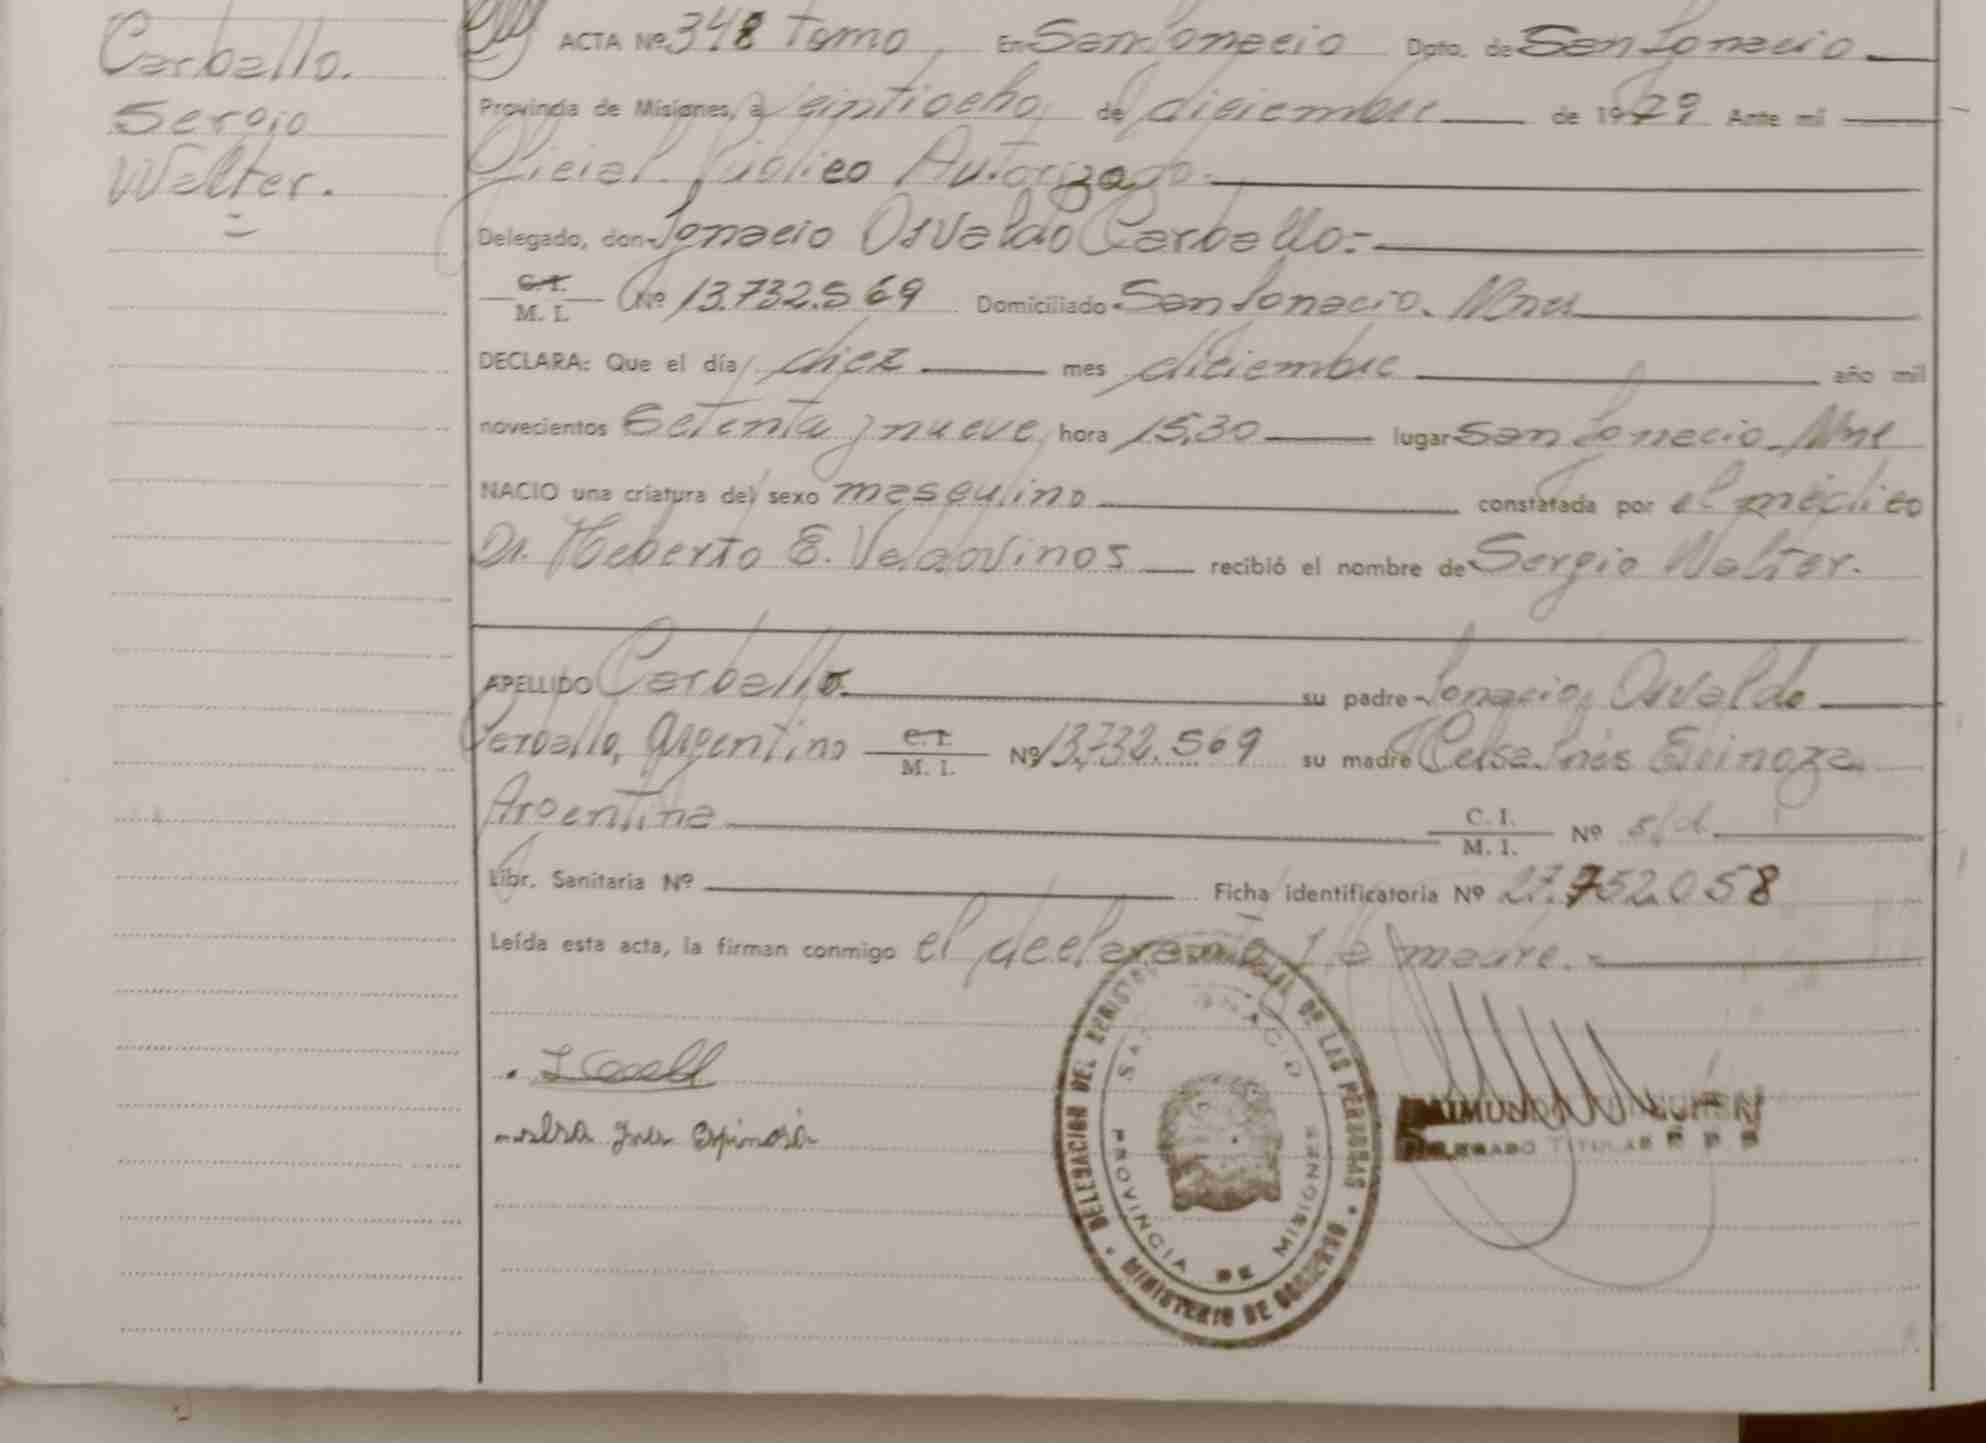 Carballo.
Sergio
Walter.
ACTA Nº 348 Tomo, En San Ignacio Dpto. de San Ignacio
Provincia de Misiones, a veintiocho de diciembre de 1979 Ante mi
Oficial Público Autorizado.
Delegado, don Ignacio Osvaldo Carballo.-
C.I.
M. I. Nº 13.732.569 Domiciliado San Ignacio. Mnes
DECLARA: Que el día diez mes diciembre año mil
novecientos Setenta y nueve hora 15.30 lugar San Ignacio. Mnes
NACIO una criatura del sexo masculino constatada por el médico
Dr. Heberto E. Valdovinos recibió el nombre de Sergio Walter.
APELLIDO Carballo. su padre Ignacio Osvaldo
Carballo, Argentino C.I. M. I. Nº 13.732.569 su madre Celsa Inés Espinoza
Argentina C. I. M. I. Nº s/d.
Libr. Sanitaria Nº Ficha identificatoria Nº 27.752.058
Leída esta acta, la firman conmigo el declarante y la madre.-
Inés Espinosa
DELEGACION DEL REGISTRO DE LAS PERSONAS
SAN IGNACIO
PROVINCIA DE MISIONES
MINISTERIO DE GOBIERNO
DELEGADO TITULAR R P P